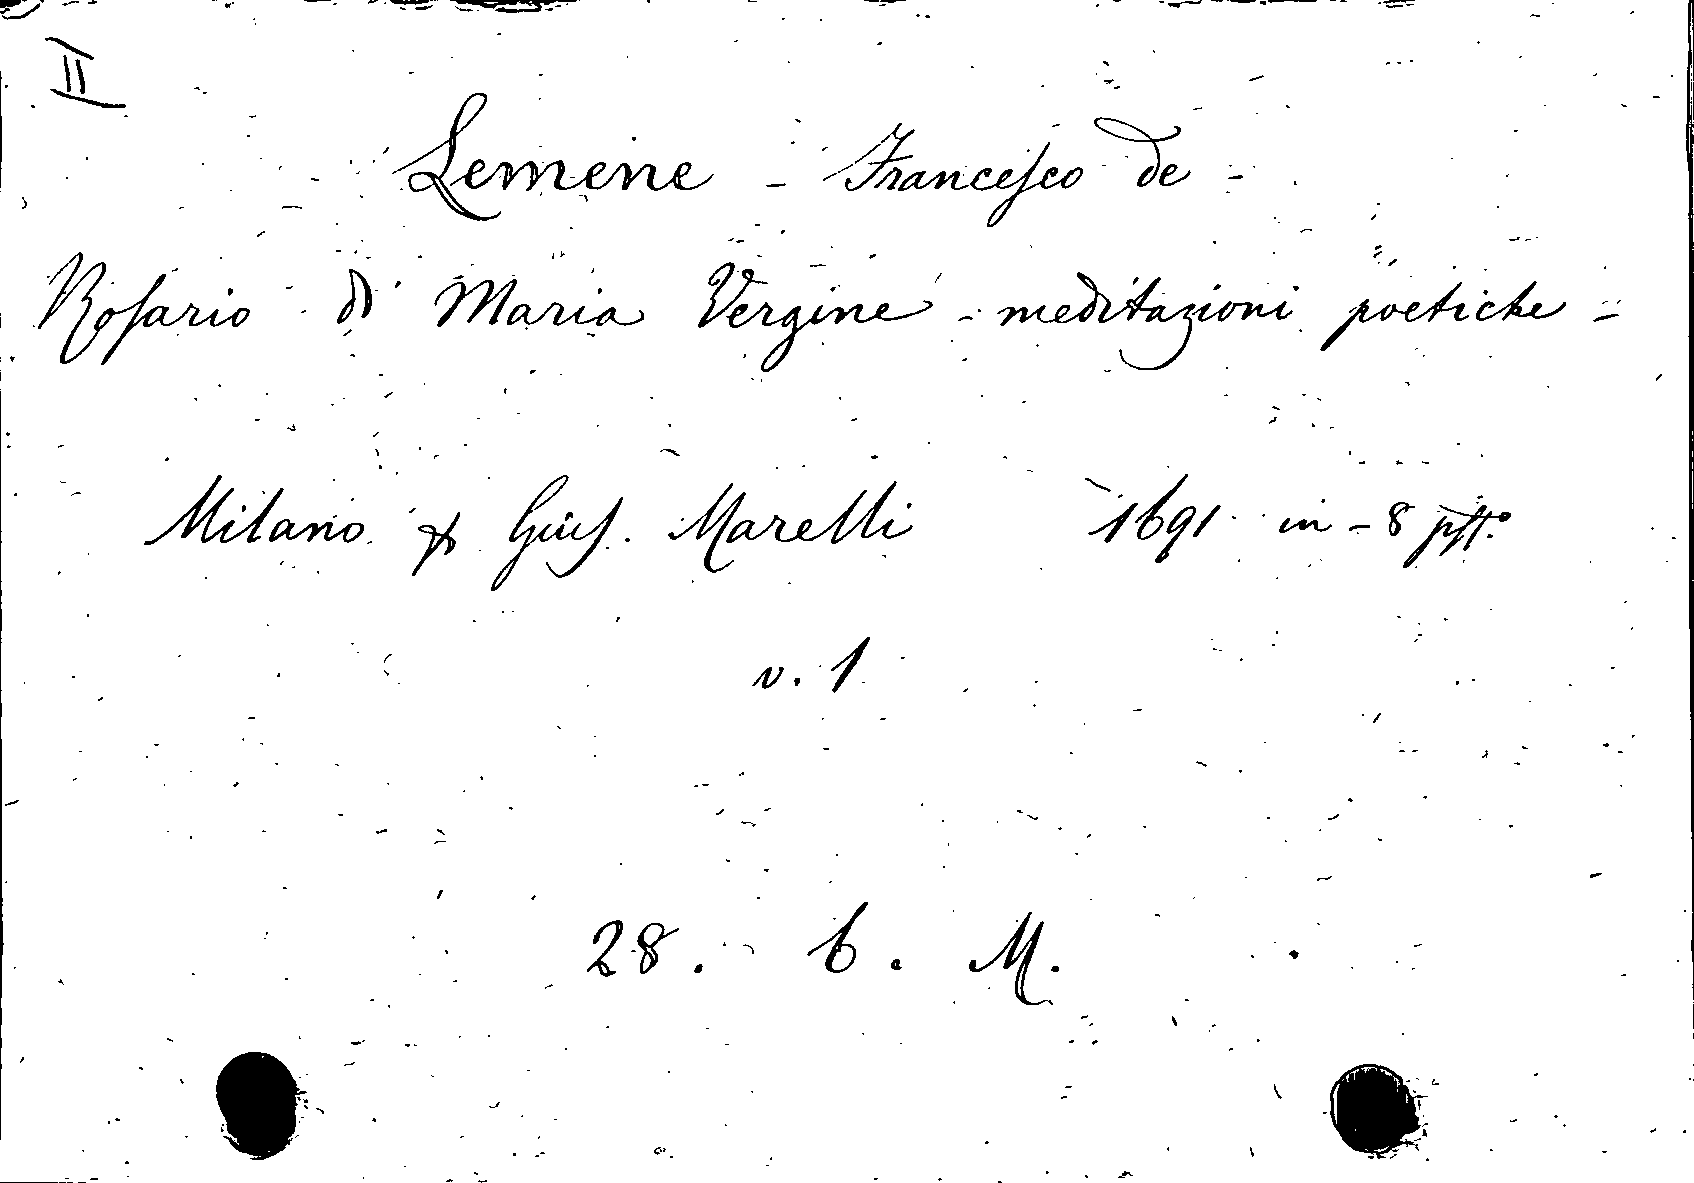 II
Lemene - Francesco de -
Rosario di Maria Vergine - meditazioni poetiche -
Milano p Gius. Marelli 1691 in-8
v. 1
28. 6. M.